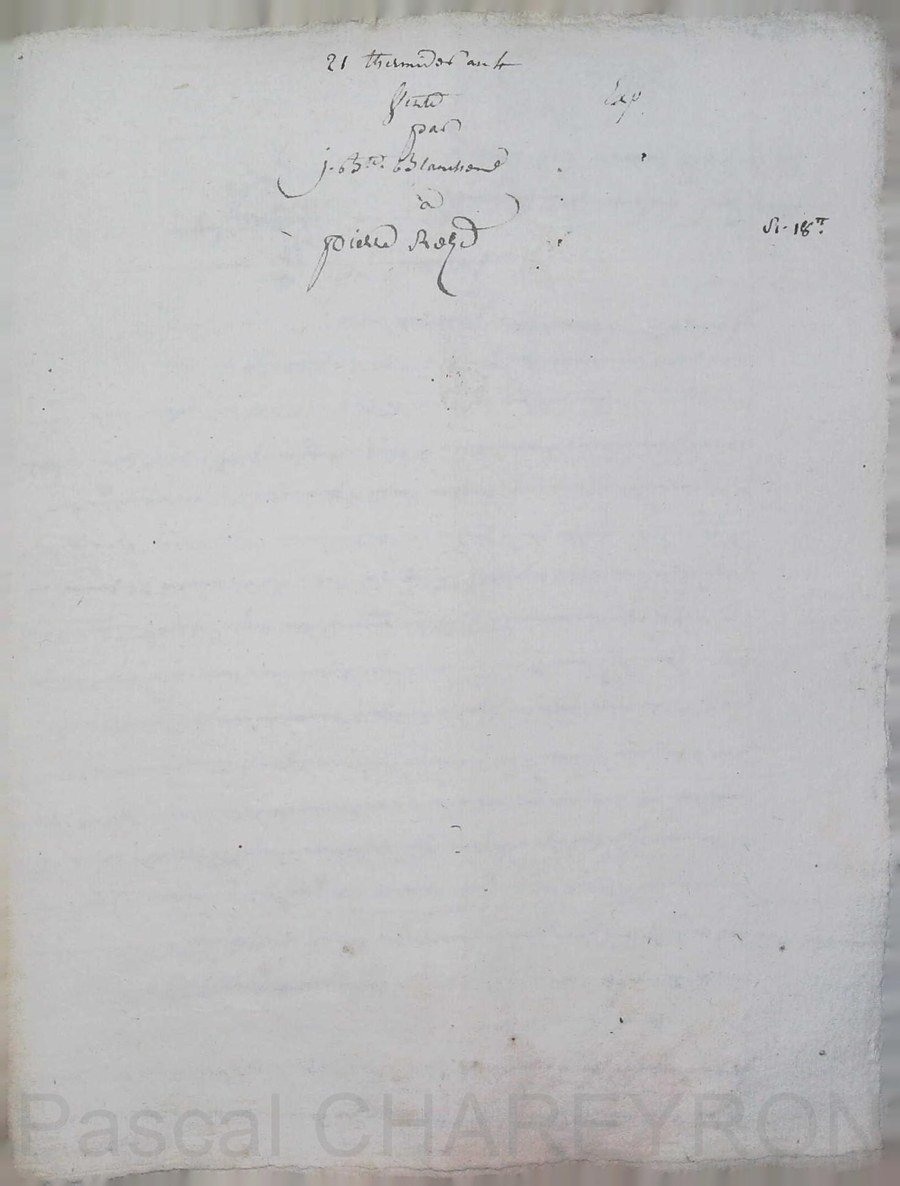 21 thermidor an 4
Vente
Exp
par
j. Bte. Blanchond
à
pierre Rozé
R. 18tt.
Pascal CHAREYRON